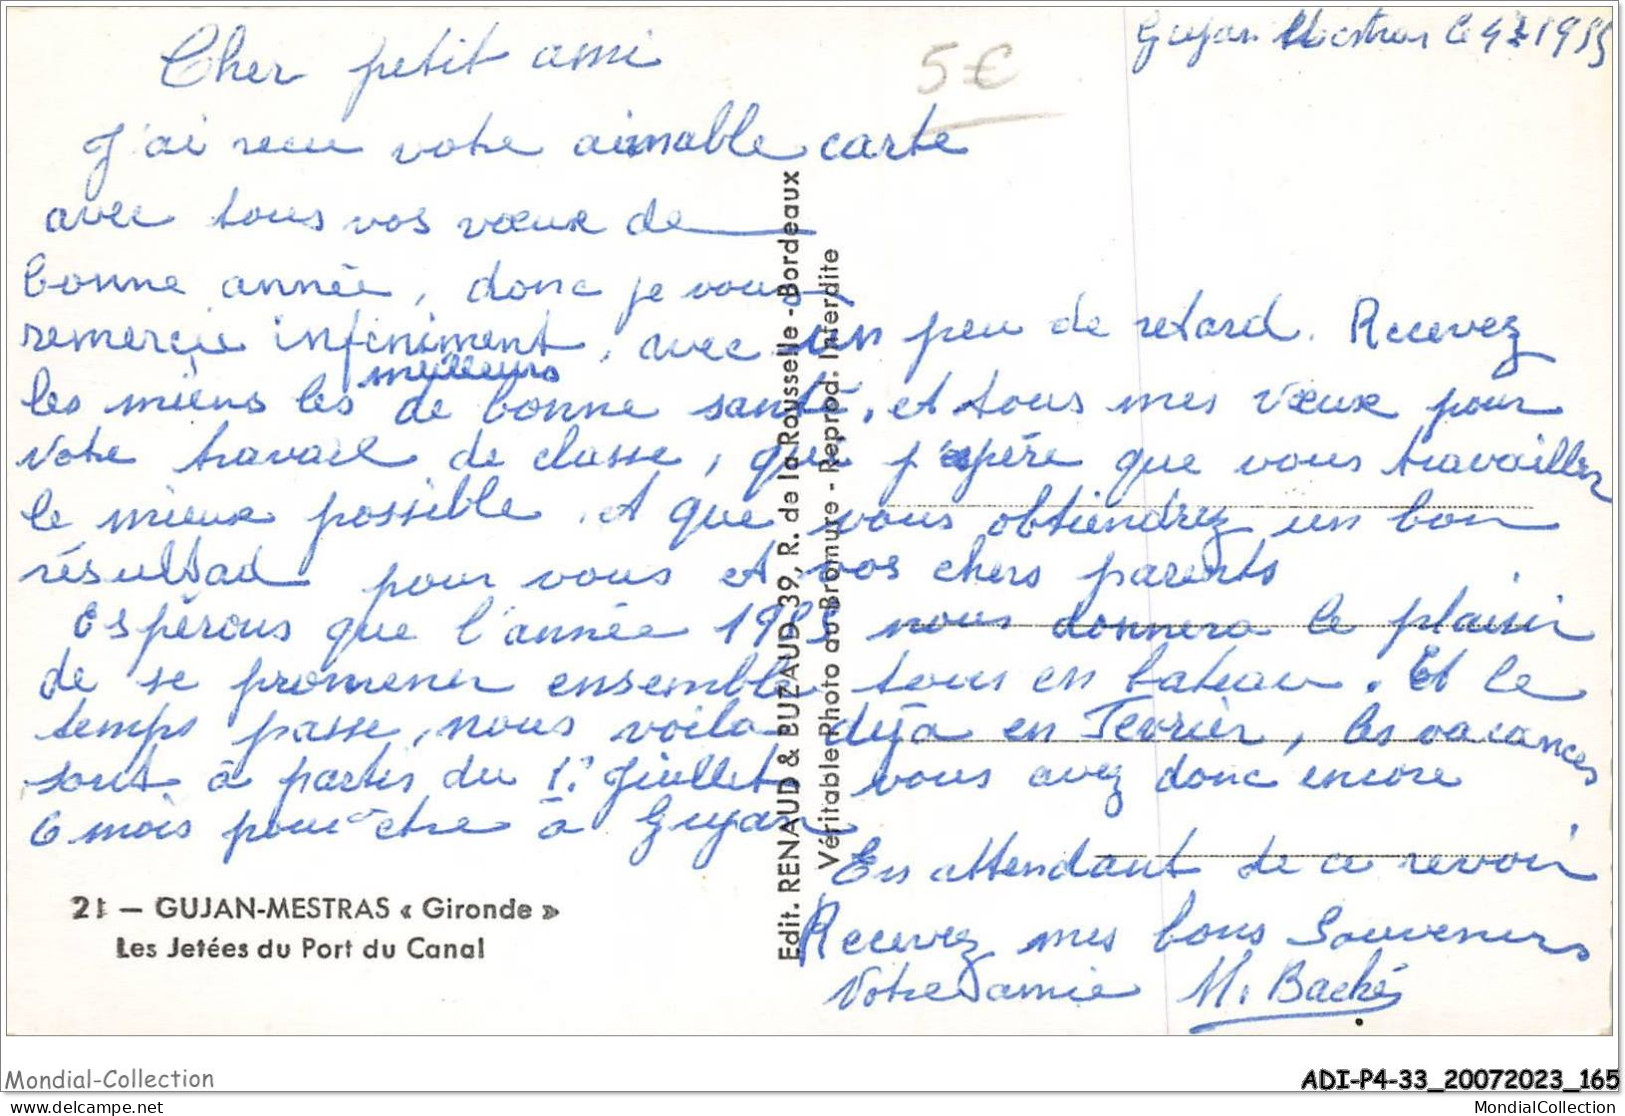 Gujan Mestras le 4 2 1955
5€
Cher petit ami
J'ai reçu votre aimable carte
avec tous vos vœux de
bonne année, donc je vous
remercie infiniment, avec un peu de retard. Recevez
meilleurs
les miens les de bonne santé, et tous mes vœux pour
votre travail de classe, que j'espère que vous travaillez
le mieux possible, et que vous obtiendrez un bon
résultad pour vous et vos chers parents
Espérons que l'année 1955 nous donnera le plaisir
de se promener ensemble tous en bateau. Et le
temps passe, nous voila déja en Fevrier, les vacances
sont à partir du 1er Juillet vous avez donc encore
6 mois pour être à Gujan
En attendant de ce revoir
Recevez mes bons Souvenirs
Votre amie M. Baché
21 — GUJAN-MESTRAS « Gironde »
Les Jetées du Port du Canal
Edit. RENAUD & BUZAUD 39, R. de la Rousselle - Bordeaux
Véritable Photo au Bromure - Reprod. Interdite
Mondial-Collection
ADI-P4-33_20072023_165
picture.delcampe.net/Mondial
MondialCollection